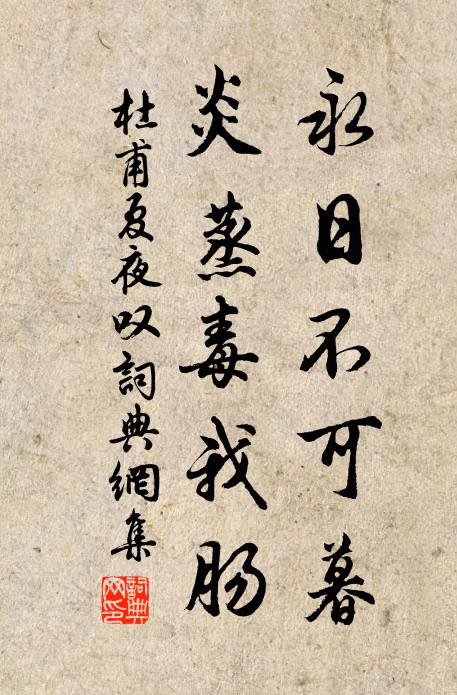 永日不可暮
炎蒸毒我肠
杜甫夏夜叹詞典網集
詞典
网印